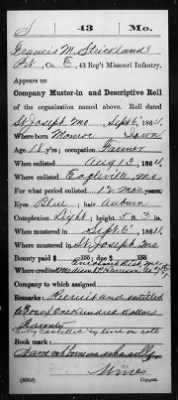 S 43 Mo.
Francis M. Strickland
Pvt, Co. E, 43 Reg't Missouri Infantry.
Appears on
Company Muster-in and Descriptive Roll
of the organization named above. Roll dated
St. Joseph Mo Sept 6, 1864.
Where born Monroe Iowa
Age 18 y'rs; occupation Farmer
When enlisted Aug 13, 1864.
Where enlisted Eagleville, Mo.
For what period enlisted 12 mos. years.
Eyes Blue; hair Auburn
Complexion Light; height 5 ft. 3 in.
When mustered in Sept. 6, 1864.
Where mustered in St. Joseph Mo
Bounty paid $ 100; due $ 100
Where credited Madison
Company to which assigned
Remarks: Recruit and entitled
to one hundred dollars
bounty
Book mark: